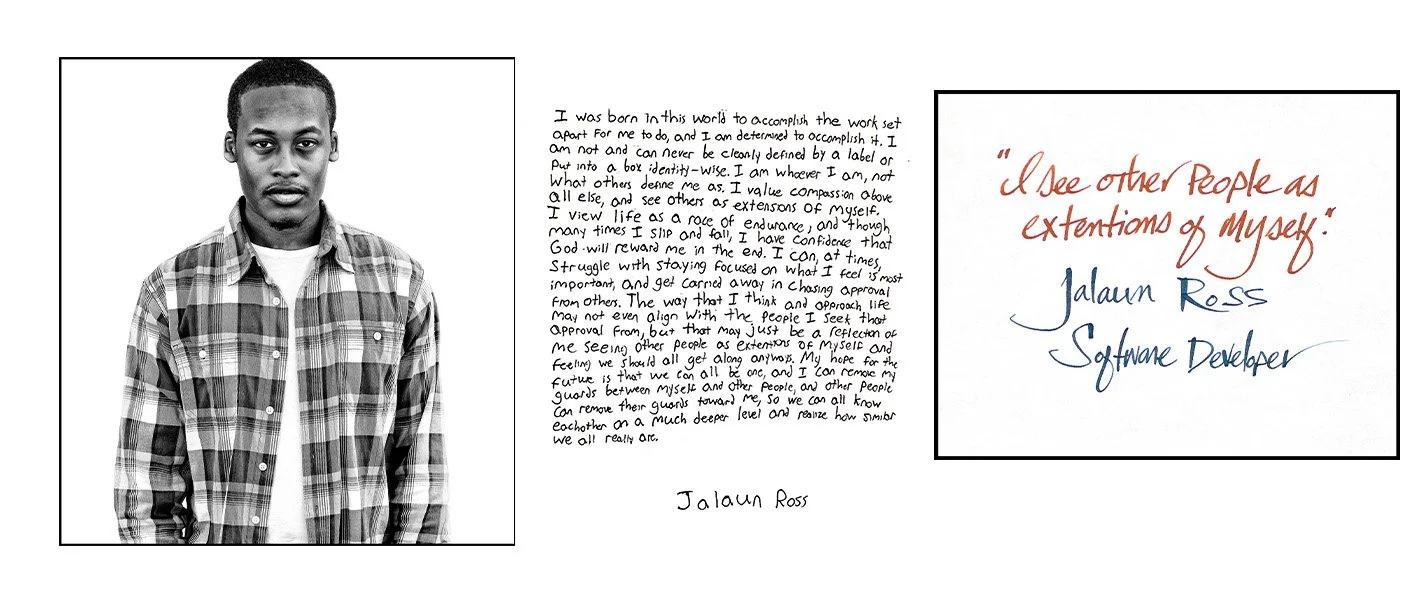 I was born in this world to accomplish the work set
apart for me to do, and I am determined to accomplish it. I
am not and can never be cleanly defined by a label or
put into a box identity-wise. I am whoever I am, not
what others define me as. I value compassion above
all else, and see others as extensions of myself.
I view life as a race of endurance, and though
many times I slip and fall, I have confidence that
God will reward me in the end. I can, at times,
struggle with staying focused on what I feel is most
important, and get carried away in chasing approval
from others. The way that I think and approach life
may not even align with the people I seek that
approval from, but that may just be a reflection of
me seeing other people as extentions of myself and
feeling we should all get along anyways. My hope for the
future is that we can all be one, and I can remove my
guards between myself and other people, and other people
can remove their guards toward me, so we can all know
eachother on a much deeper level and realize how similar
we all really are.
Jalaun Ross
"I see other People as
extentions of Myself."
Jalaun Ross
Software Developer